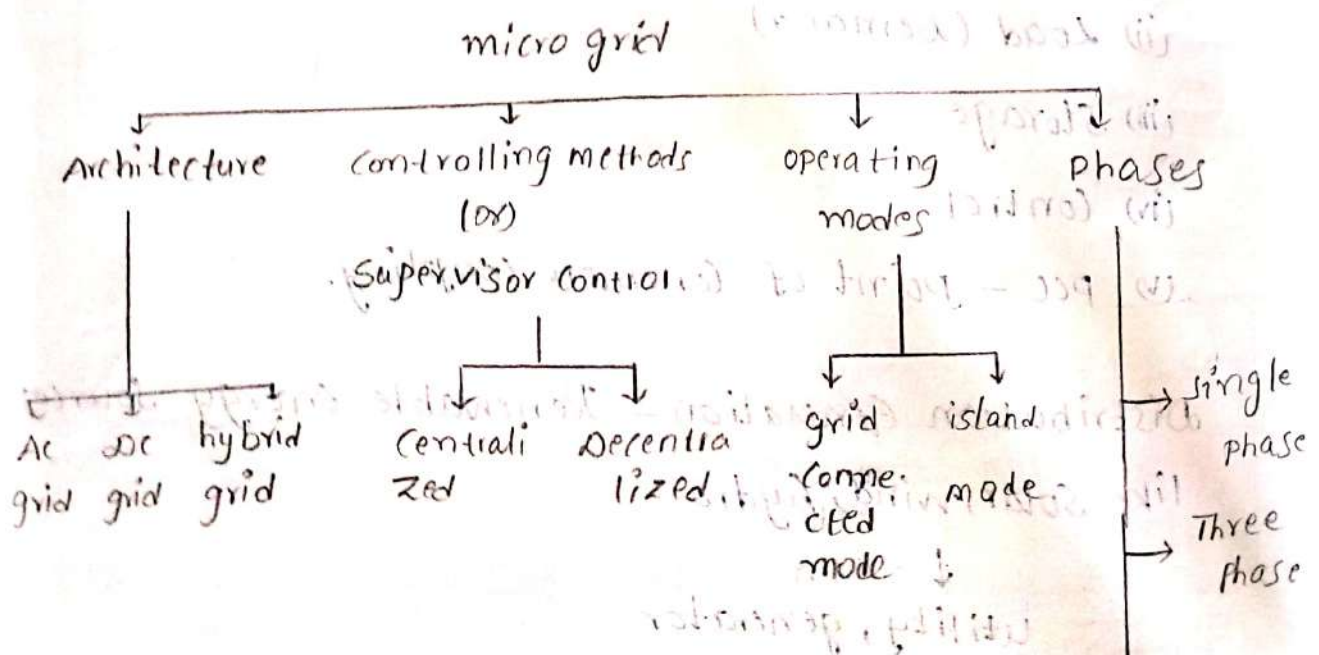 micro grid
Architecture
controlling methods
(or)
Supervisor control.
operating
modes
phases
AC
grid
DC
grid
hybrid
grid
Centrali
zed
Decentra
lized.
grid
conne-
cted
mode
island
mode
single
phase
Three
phase